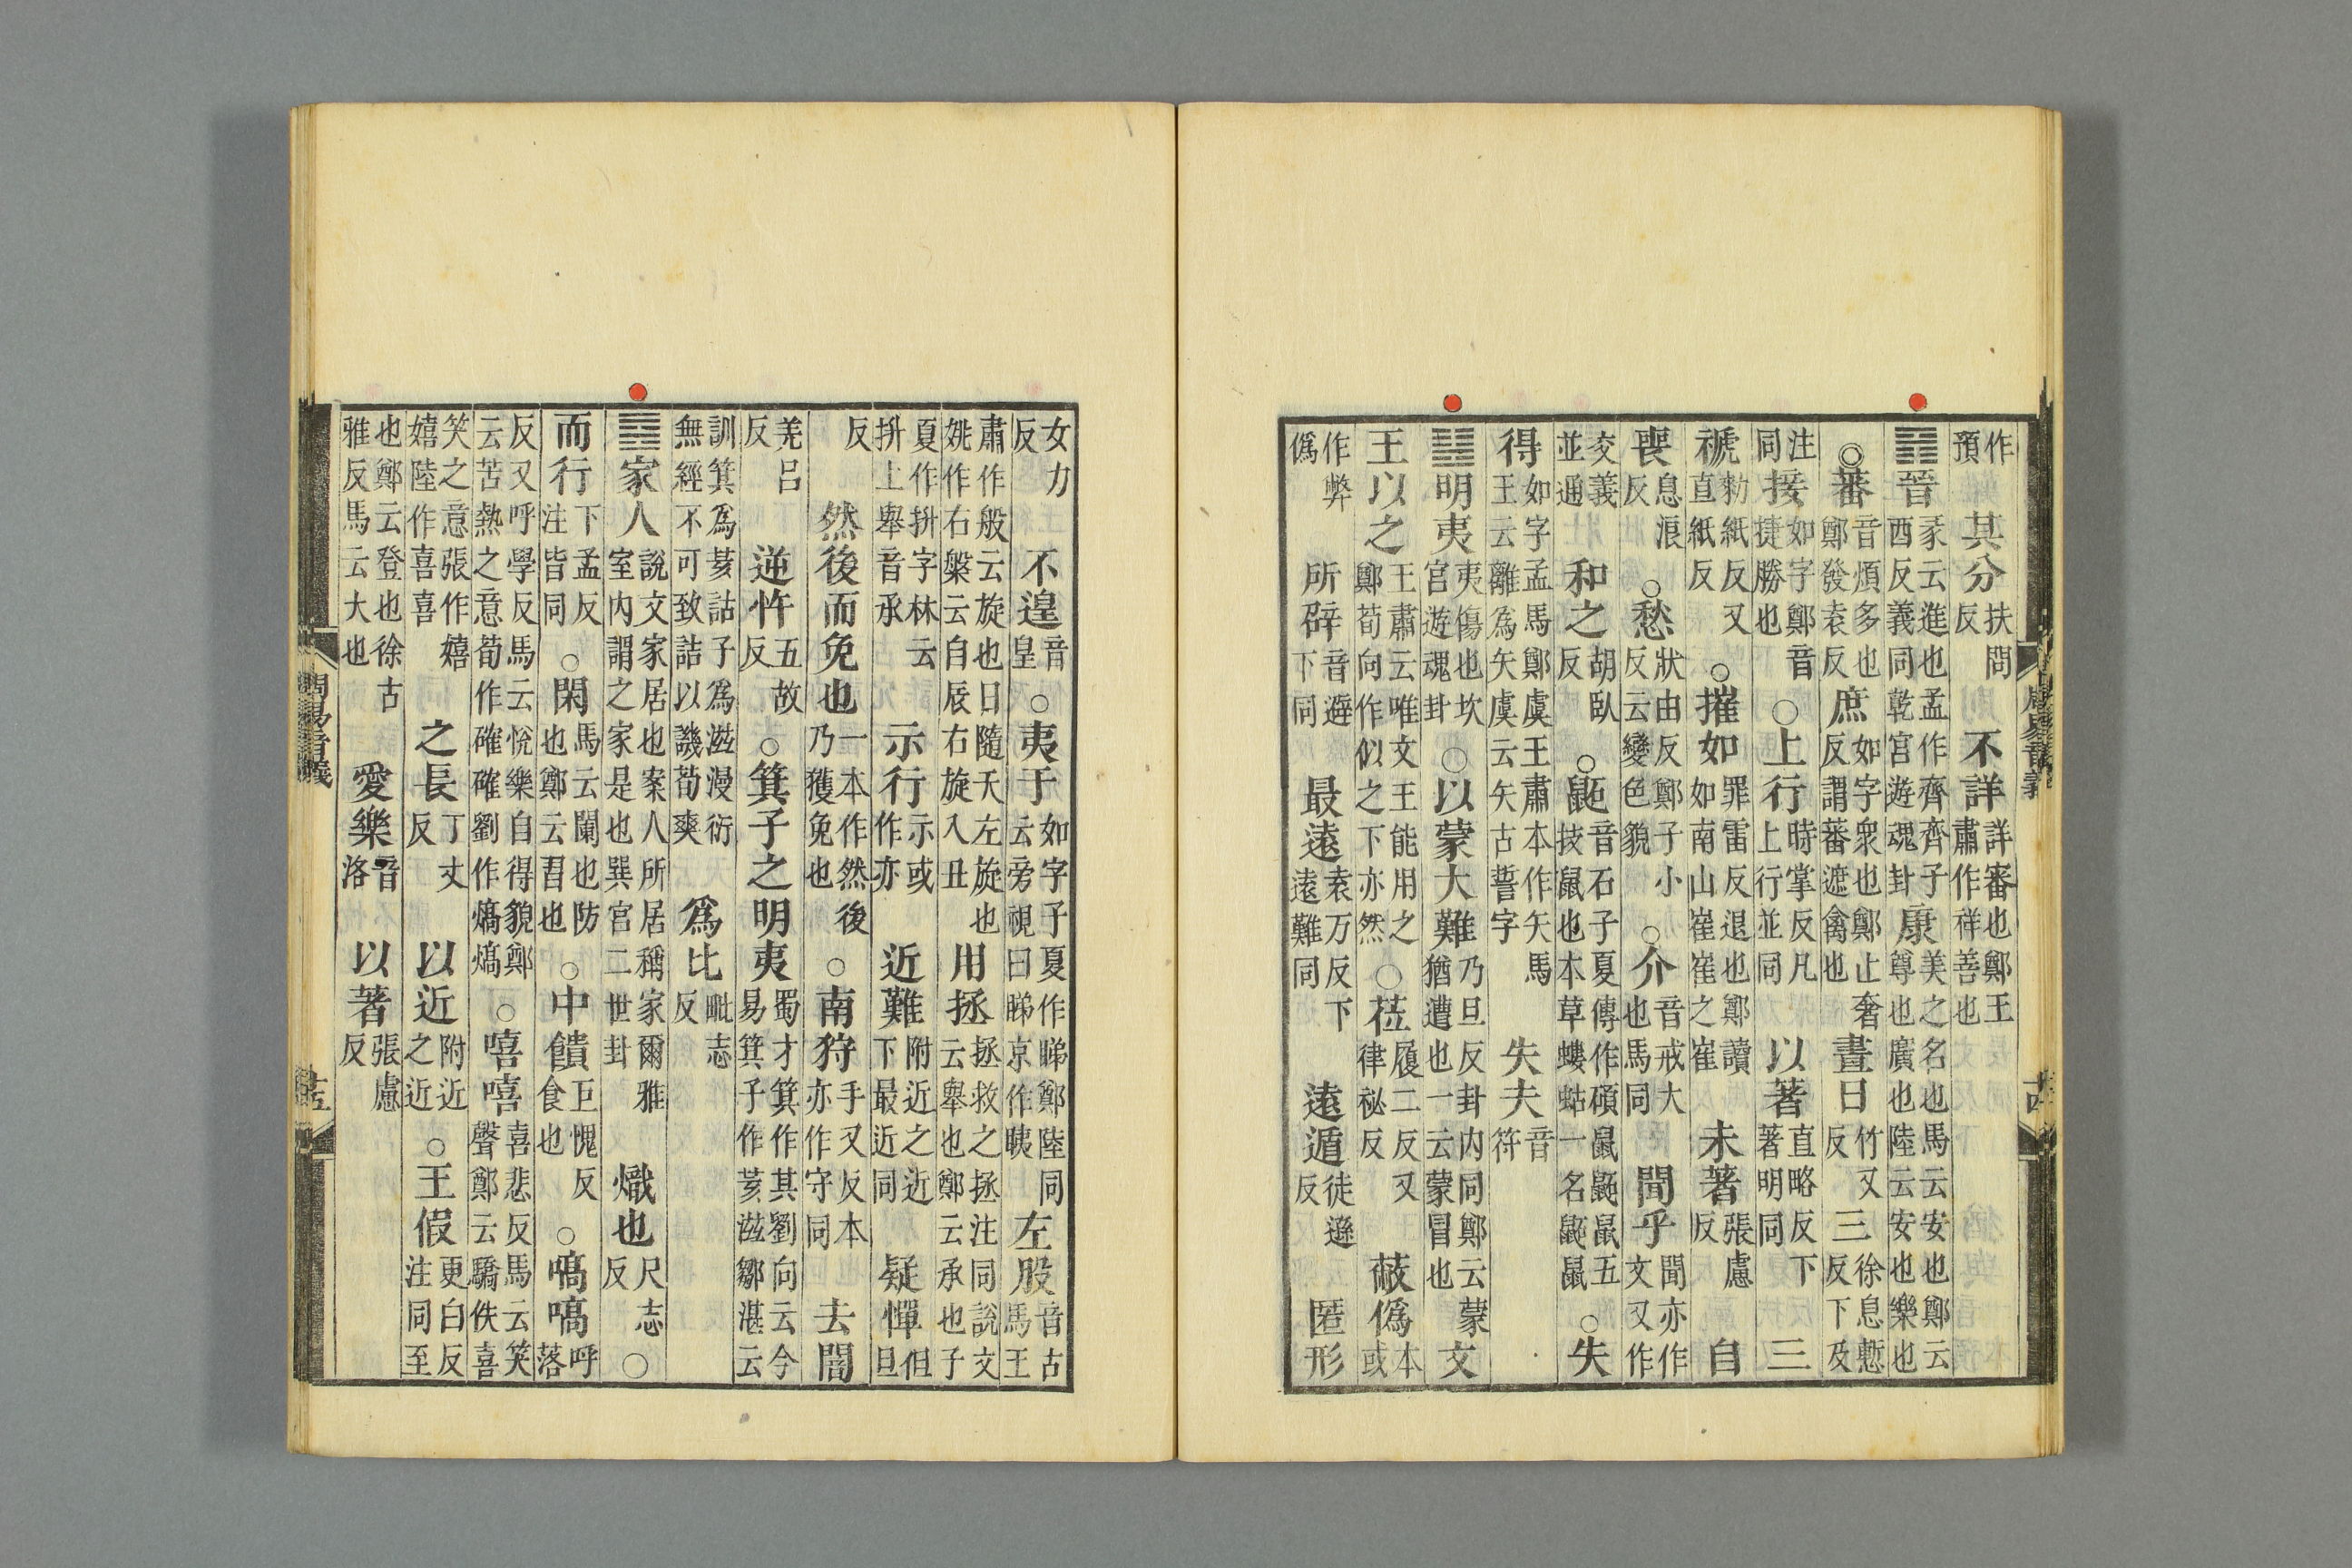 作預其分扶問反不詳詳審也鄭王肅作祥善也
䷢晉彖云進也孟作齊齊子西反義同乾宮遊魂卦康美之名也馬云安也鄭云尊也廣也陸云安也樂也
○蕃音煩多也鄭發袁反庶如字衆也鄭止奢反謂蕃遮禽也晝日竹又反三徐息慙反下及
注同接如字鄭音捷勝也○上行時掌反凡上行並同以著直略反下著明同三
褫勑紙反又直紙反○摧如罪雷反退也鄭讀如南山崔崔之崔未著張慮反自
喪息浪反○愁狀由反鄭子小反云變色貌○介音戒大也馬同聞乎聞亦作文又作
交義並通和之胡臥反○鼫音石子夏傳作碩鼠鼫鼠五技鼠也本草螻蛄一名鼫鼠○失
得如字孟馬鄭虞王肅本作矢馬王云離為矢虞云矢古誓字失夫音符
䷣明夷夷傷也坎宮遊魂卦○以蒙大難乃旦反卦内同鄭云蒙猶遭也一云蒙冒也文
王以之王肅云唯文王能用之鄭荀向作似之下亦然○莅履二反又律祕反蔽僞本或
作弊僞所辟音避下同最遠袁万反下遠難同遠遁徒遜反匿形
周易音義
女力反不遑音皇○夷于如字子夏作睇鄭陸同云旁視曰睇京作眱左股音古馬王
肅作般云旋也日隨天左旋也姚作右槃云自辰右旋入丑用拯拯救之拯注同說文云舉也鄭云承也子
夏作抍字林云抍上舉音承示行示或作亦近難附近之近下最近同疑憚但旦
反然後而免也一本作然後乃獲免也○南狩手又反本亦作守同去闇
羌呂反逆忤五故反○箕子之明夷蜀才箕作其劉向云今易箕子作荄滋鄒湛云
訓箕爲荄詁子爲滋漫衍無經不可致詰以譏荀爽爲比毗志反
䷤家人說文家居也案人所居稱家爾雅室内謂之家是也巽宮二世卦熾也尺志反○
而行下孟反注皆同○閑馬云闌也防也鄭云習也○中饋巨愧反食也○嗃嗃呼落
反又呼學反馬云悅樂自得貌鄭云苦熱之意荀作確確劉作熇熇○嘻嘻喜悲反馬云笑聲鄭云驕佚喜
笑之意張作嬉嬉陸作喜喜之長丁丈反以近附近之近○王假更白反注同至
也鄭云登也徐古雅反馬云大也愛樂音洛以著張慮反
周易音義